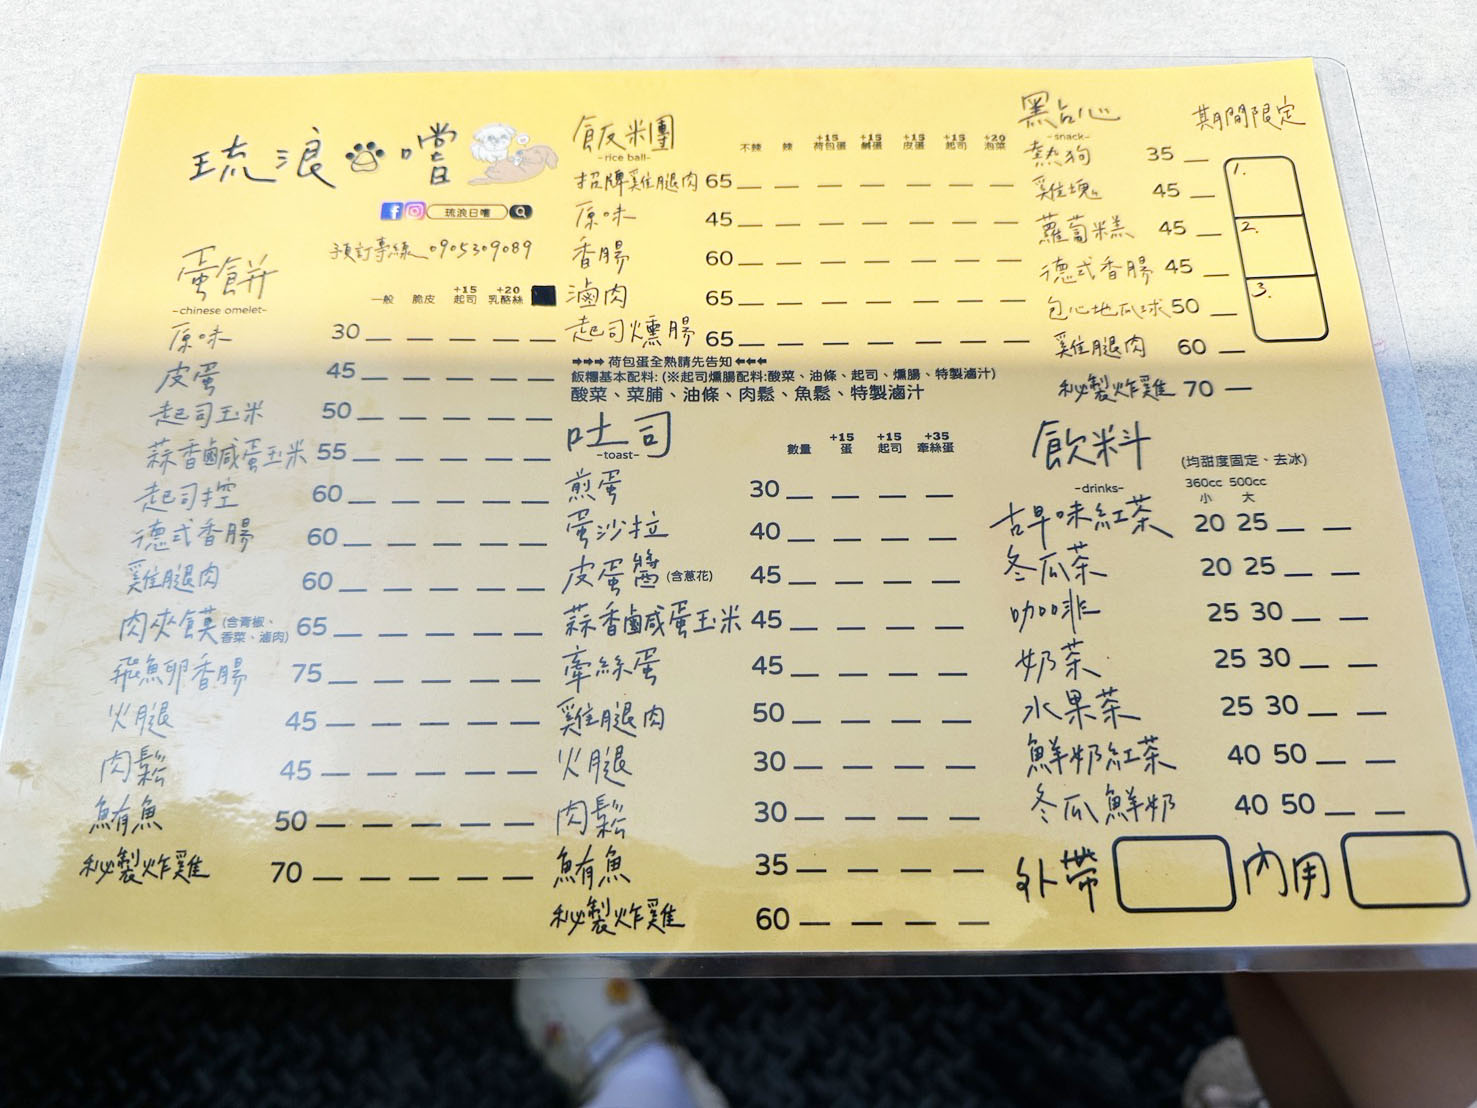 琉浪 嚐
琉浪日嚐
預訂專線 0905309089
蛋餅
-chinese omelet-
一般 脆皮 +15 起司 +20 乳酪絲
原味 30
皮蛋 45
起司玉米 50
蒜香鹹蛋玉米 55
起司控 60
德式香腸 60
雞腿肉 60
肉夾饃 (含青椒、香菜、滷肉) 65
飛魚卵香腸 75
火腿 45
肉鬆 45
鮪魚 50
秘製炸雞 70
飯米團
-rice ball-
不辣 辣 +15 荷包蛋 +15 鹹蛋 +15 皮蛋 +15 起司 +20 泡菜
招牌雞腿肉 65
原味 45
香腸 60
滷肉 65
起司燻腸 65
➡➡➡ 荷包蛋全熟請先告知 ⬅⬅⬅
飯糰基本配料: (※起司燻腸配料:酸菜、油條、起司、燻腸、特製滷汁)
酸菜、菜脯、油條、肉鬆、魚鬆、特製滷汁
吐司
-toast-
數量 +15 蛋 +15 起司 +35 牽絲蛋
煎蛋 30
蛋沙拉 40
皮蛋醬 (含蔥花) 45
蒜香鹹蛋玉米 45
牽絲蛋 45
雞腿肉 50
火腿 30
肉鬆 30
鮪魚 35
秘製炸雞 60
點心
-snack-
熱狗 35
雞塊 45
蘿蔔糕 45
德式香腸 45
包心地瓜球 50
雞腿肉 60
秘製炸雞 70
期間限定
1.
2.
3.
飲料
-drinks-
(均甜度固定、去冰)
360cc 500cc
小 大
古早味紅茶 20 25
冬瓜茶 20 25
咖啡 25 30
奶茶 25 30
水果茶 25 30
鮮奶紅茶 40 50
冬瓜鮮奶 40 50
外帶 內用